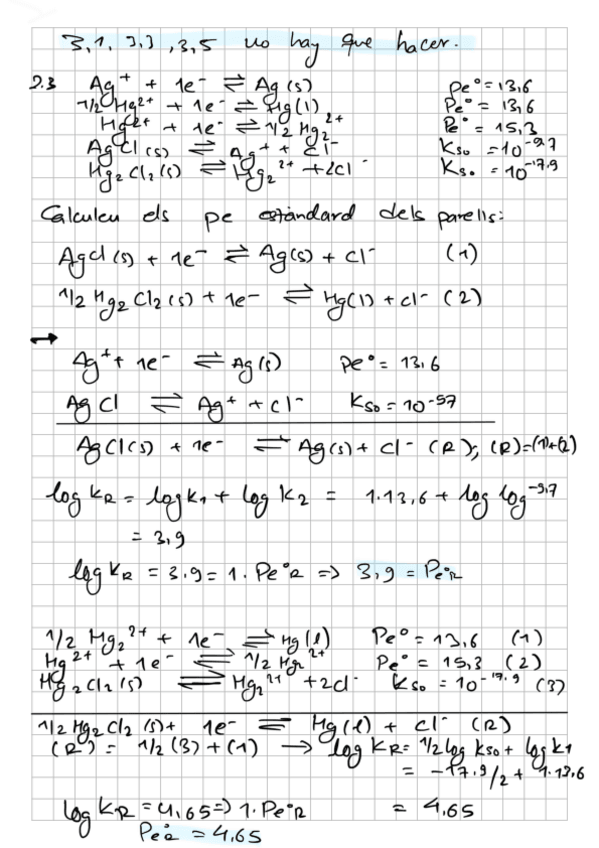 3,1, 3,3, 3,5 no hay que hacer.
2.3 Ag⁺ + 1e⁻ ⇌ Ag(s) pe° = 13,6
1/2 Hg²⁺ + 1e⁻ ⇌ Hg(l) Pe° = 13,6
Hg²⁺ + 1e⁻ ⇌ 1/2 Hg₂²⁺ Pe° = 15,3
AgCl(s) ⇌ Ag⁺ + Cl⁻ Kso = 10⁻⁹·⁷
Hg₂Cl₂(s) ⇌ Hg₂²⁺ + 2Cl⁻ Kso = 10⁻¹⁷·⁹
Calculeu els pe estàndard dels parells:
AgCl(s) + 1e⁻ ⇌ Ag(s) + Cl⁻ (1)
1/2 Hg₂Cl₂(s) + 1e⁻ ⇌ Hg(l) + Cl⁻ (2)
→
Ag⁺ + 1e⁻ ⇌ Ag(s) Pe° = 13,6
AgCl ⇌ Ag⁺ + Cl⁻ Kso = 10⁻⁹⁷
AgCl(s) + 1e⁻ ⇌ Ag(s) + Cl⁻ (R); (R)=(1)+(2)
log KR = log K1 + log K2 = 1·13,6 + log log⁻⁹,⁷
= 3,9
log KR = 3.9 = 1. Pe°R ⇒ 3,9 = Pe°R
1/2 Hg₂²⁺ + 1e⁻ ⇌ Hg(l) Pe° = 13,6 (1)
Hg²⁺ + 1e⁻ ⇌ 1/2 Hg₂²⁺ Pe° = 15,3 (2)
Hg₂Cl₂(s) ⇌ Hg₂²⁺ + 2Cl⁻ Kso = 10⁻¹⁷·⁹ (3)
1/2 Hg₂Cl₂(s) + 1e⁻ ⇌ Hg(l) + Cl⁻ (R)
(R) = 1/2(3) + (1) → log KR = 1/2 log Kso + log K1
= -17.9/2 + 1.13,6
log KR = 4,65 ⇒ 1. Pe°R = 4,65
Pe°R = 4,65